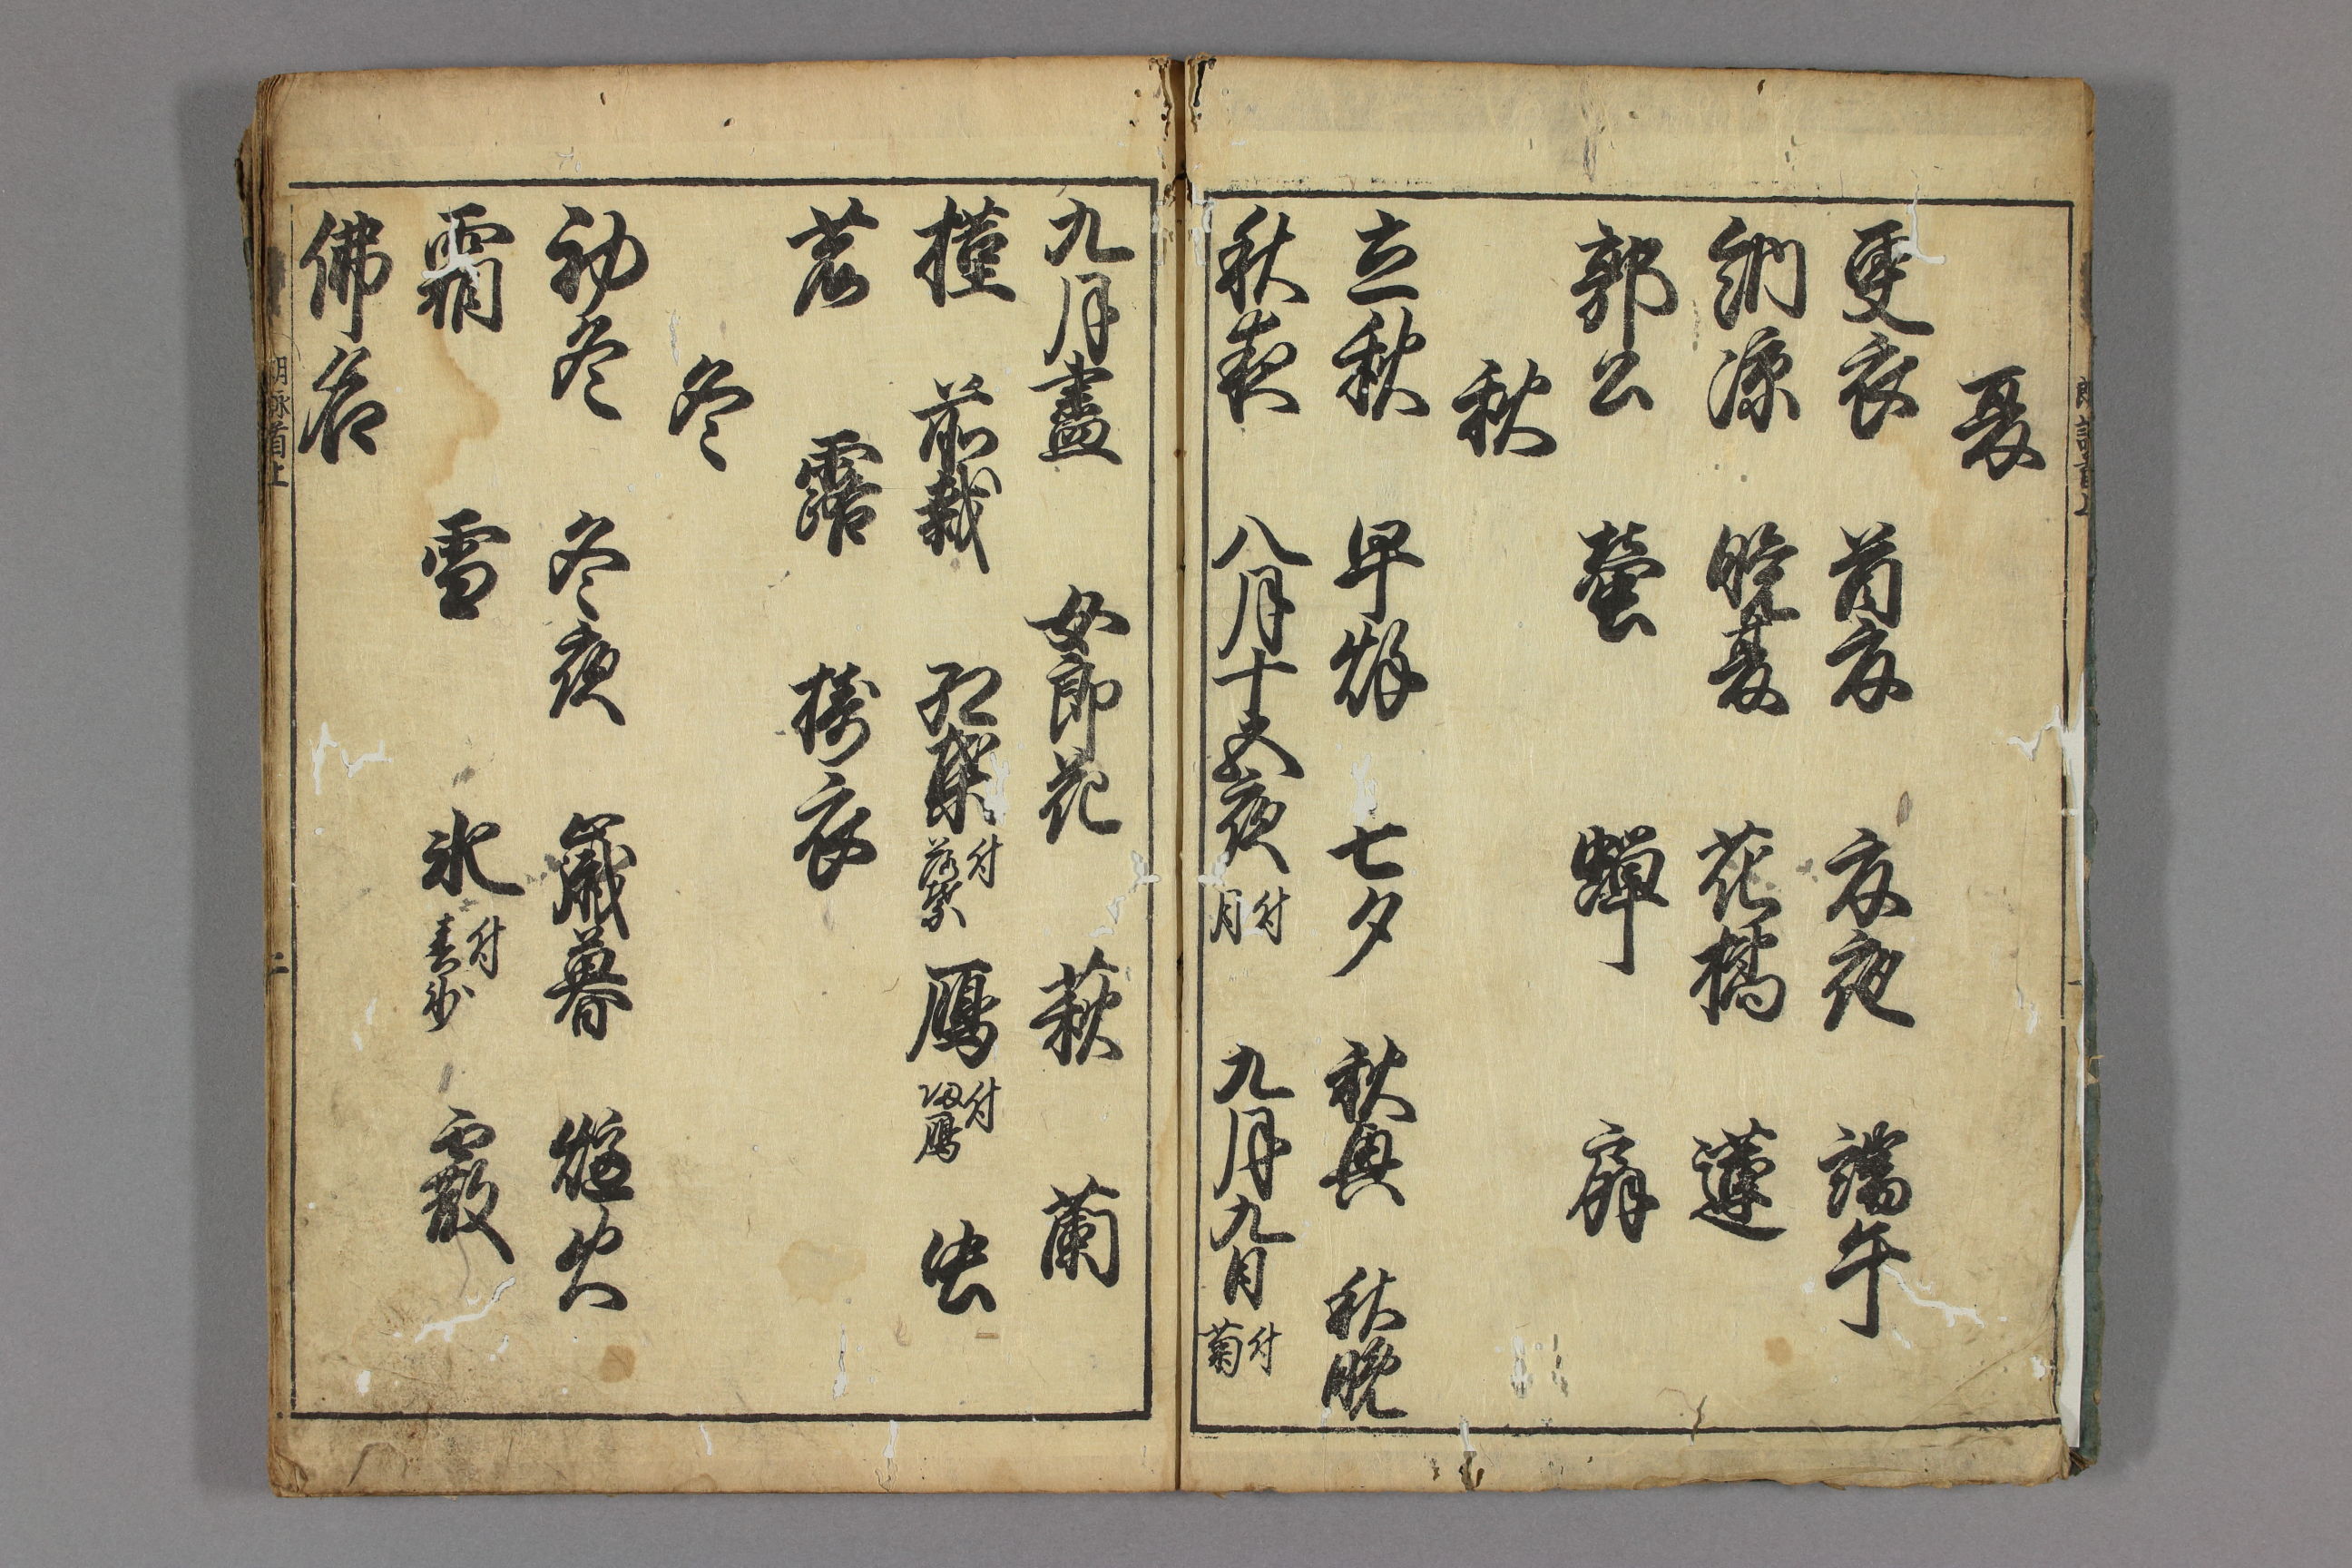 夏
更衣 首夏 夏夜 端午
納凉 晩夏 花橘 蓮
郭公 螢 蟬 扇
秋
立秋 早秋 七夕 秋興 秋晩
秋夜 八月十五夜 付月 九月九日 付菊
九月盡 女郎花 萩 蘭
槿 前栽 紅葉 付落葉 鴈 付帰鴈 虫
霧 露 擣衣
冬
初冬 冬夜 歳暮 爐火
霜 雪 氷 付春氷 霰
佛名
朗詠首上 二